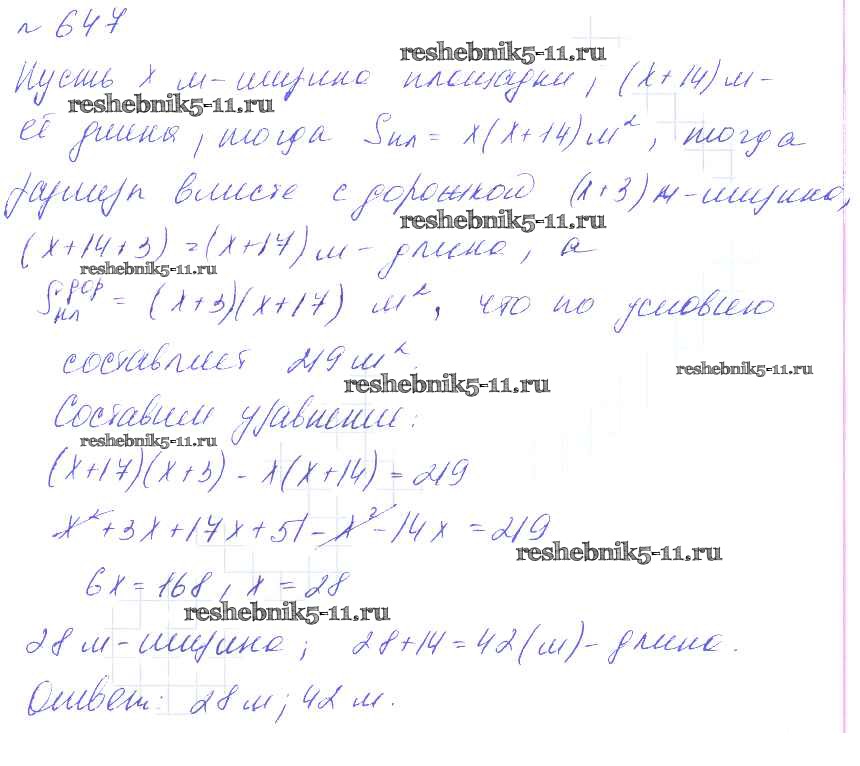 № 647
reshebnik5-11.ru
Пусть x м - ширина площадки, (x+14) м -
reshebnik5-11.ru
её длина, тогда Sпл = x(x+14) м², тогда
размеры вместе с дорожкой (x+3) м - ширина,
reshebnik5-11.ru
(x+14+3) = (x+17) м - длина, а
reshebnik5-11.ru
Sпл+дор = (x+3)(x+17) м², что по условию
составляет 219 м².
reshebnik5-11.ru
reshebnik5-11.ru
Составим уравнение:
reshebnik5-11.ru
(x+17)(x+3) - x(x+14) = 219
x² + 3x + 17x + 51 - x² - 14x = 219
reshebnik5-11.ru
6x = 168, x = 28
reshebnik5-11.ru
28 м - ширина; 28+14 = 42 (м) - длина.
Ответ: 28 м; 42 м.